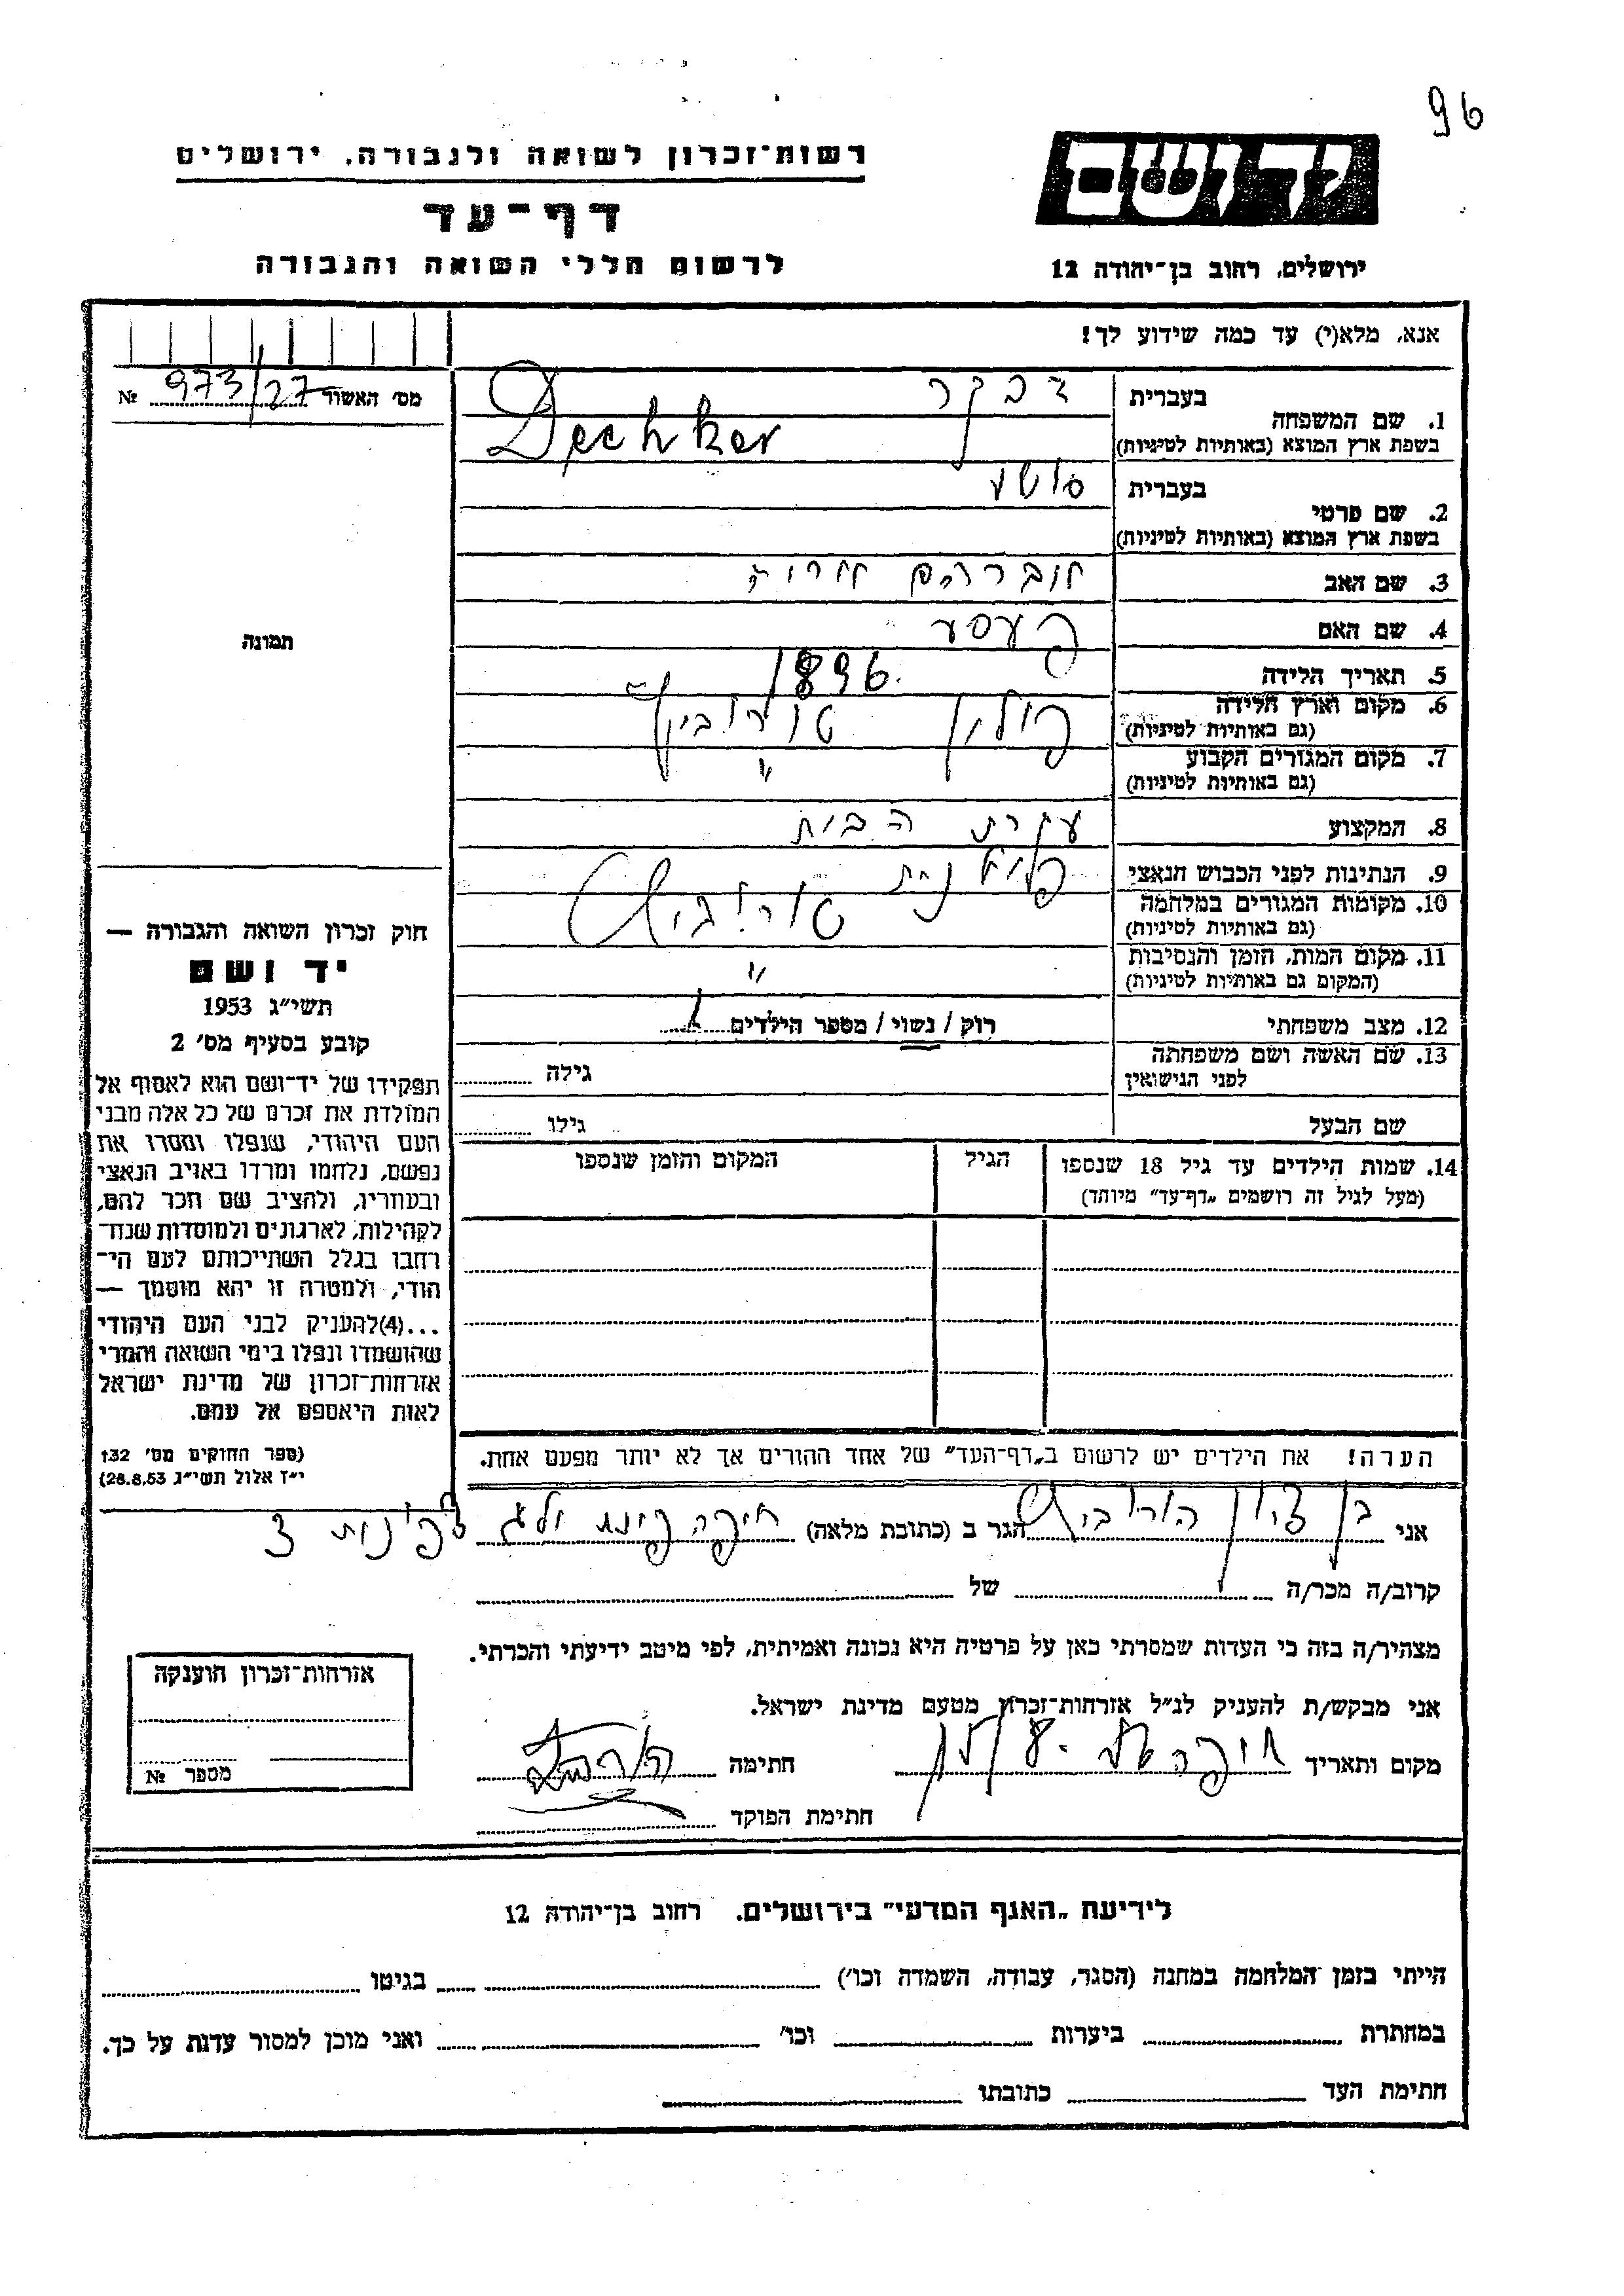 96
רשות־זכרון לשואה ולגבורה, ירושלים
יד ושם
דף־עד
לרשום חללי השואה והגבורה
ירושלים, רחוב בן־יהודה 12
אנא, מלא(י) עד כמה שידוע לך!
מס׳ האשור 973/27 №
1. שם המשפחה
בעברית דכקר
בשפת ארץ המוצא (באותיות לטיניות) Dechker
2. שם פרטי
בעברית סושע
בשפת ארץ המוצא (באותיות לטיניות)
3. שם האב אברהם אריה
4. שם האם פעסע
5. תאריך הלידה 1896
6. מקום וארץ הלידה פולין טורובין
(גם באותיות לטיניות)
7. מקום המגורים הקבוע "
(גם באותיות לטיניות)
8. המקצוע עקרת הבית
9. הנתינות לפני הכבוש הנאצי פולנית
10. מקומות המגורים במלחמה טורובין
(גם באותיות לטיניות)
11. מקום המות, הזמן והנסיבות "
(המקום גם באותיות לטיניות)
12. מצב משפחתי רוק / נשוי / מספר הילדים
13. שם האשה ושם משפחתה
לפני הנישואין גילה
שם הבעל גילו
14. שמות הילדים עד גיל 18 שנספו הגיל המקום והזמן שנספו
(מעל לגיל זה רושמים „דף־עד” מיוחד)
הערה! את הילדים יש לרשום ב„דף־העד” של אחד ההורים אך לא יותר מפעם אחת.
תמונה
חוק זכרון השואה והגבורה —
יד ושם
תשי״ג 1953
קובע בסעיף מס׳ 2
תפקידו של יד־ושם הוא לאסוף אל
המולדת את זכרם של כל אלה מבני
העם היהודי, שנפלו ומסרו את
נפשם, נלחמו ומרדו באויב הנאצי
ובעוזריו, ולהציב שם וזכר להם,
לקהילות, לארגונים ולמוסדות שנח־
רבו בגלל השתייכותם לעם הי־
הודי, ולמטרה זו יהא מוסמך —
...(4)להעניק לבני העם היהודי
שהושמדו ונפלו בימי השואה והמרי
אזרחות־זכרון של מדינת ישראל
לאות היאספם אל עמם.
(ספר החוקים מס׳ 132
י״ז אלול תשי״ג 28.8.53)
אני בן ציון הורוביץ הגר ב (כתובת מלאה) חיפה
קרוב/ה מכר/ה של
מצהיר/ה בזה כי העדות שמסרתי כאן על פרטיה היא נכונה ואמיתית, לפי מיטב ידיעתי והכרתי.
אני מבקש/ת להעניק לנ״ל אזרחות־זכרון מטעם מדינת ישראל.
מקום ותאריך חתימה
חתימת הפוקד
אזרחות־זכרון הוענקה
מספר №
לידיעת „האגף המדעי” בירושלים, רחוב בן־יהודה 12
הייתי בזמן המלחמה במחנה (הסגר, עבודה, השמדה וכו׳) בגיטו
במחתרת ביערות וכו׳ ואני מוכן למסור עדות על כך.
חתימת העד כתובתו